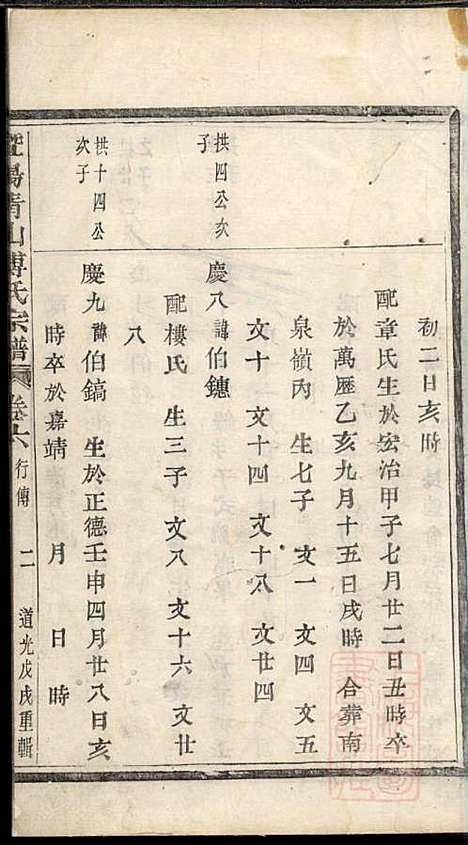 初二日亥時
配章氏生於宏治甲子七月廿二日丑時卒
於萬歷乙亥九月十五日戌時 合葬南
泉嶺內 生七子 文一 文四 文五
文十 文十四 文十八 文廿四
拱四公次
子
慶八諱伯鏸
配樓氏 生三子 文八 文十六 文廿
八
拱十四公
次子
慶九諱伯鎬 生於正德壬申四月廿八日亥
時卒於嘉靖 月 日 時
暨陽青山傅氏宗譜 卷六 行傳 二 道光戊戌重輯